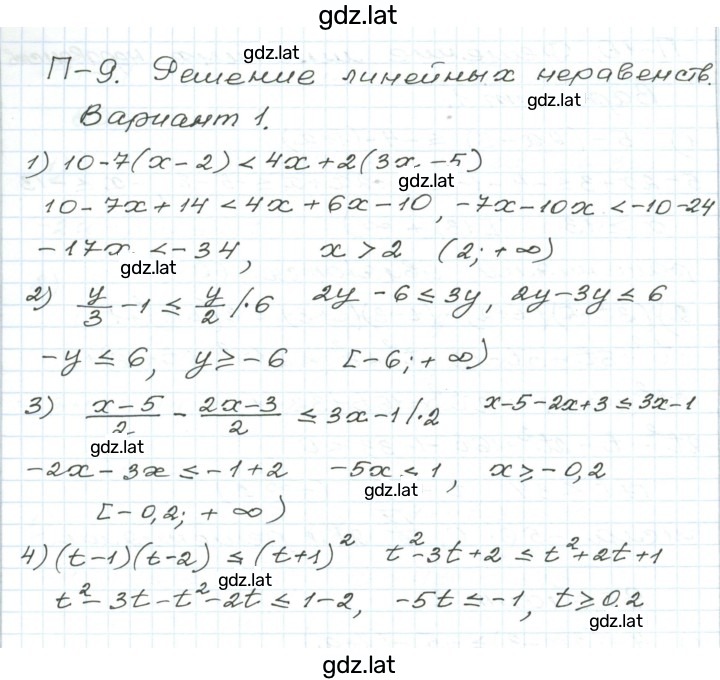 gdz.lat
gdz.lat
П-9. Решение линейных неравенств.
gdz.lat
Вариант 1.
1) 10-7(x-2) < 4x+2(3x-5)
gdz.lat
10-7x+14 < 4x+6x-10, -7x-10x < -10-24
-17x < -34, x > 2 (2; +∞)
gdz.lat
2) y/3 - 1 ≤ y/2 /·6 2y-6 ≤ 3y, 2y-3y ≤ 6
-y ≤ 6, y ≥ -6 [-6; +∞)
3) (x-5)/2 - (2x-3)/2 ≤ 3x-1 /·2 x-5-2x+3 ≤ 3x-1
gdz.lat
-2x-3x ≤ -1+2 -5x < 1, x ≥ -0,2
gdz.lat
[-0,2; +∞)
4) (t-1)(t-2) ≤ (t+1)² t²-3t+2 ≤ t²+2t+1
gdz.lat
t²-3t-t²-2t ≤ 1-2, -5t ≤ -1, t ≥ 0.2
gdz.lat
gdz.lat